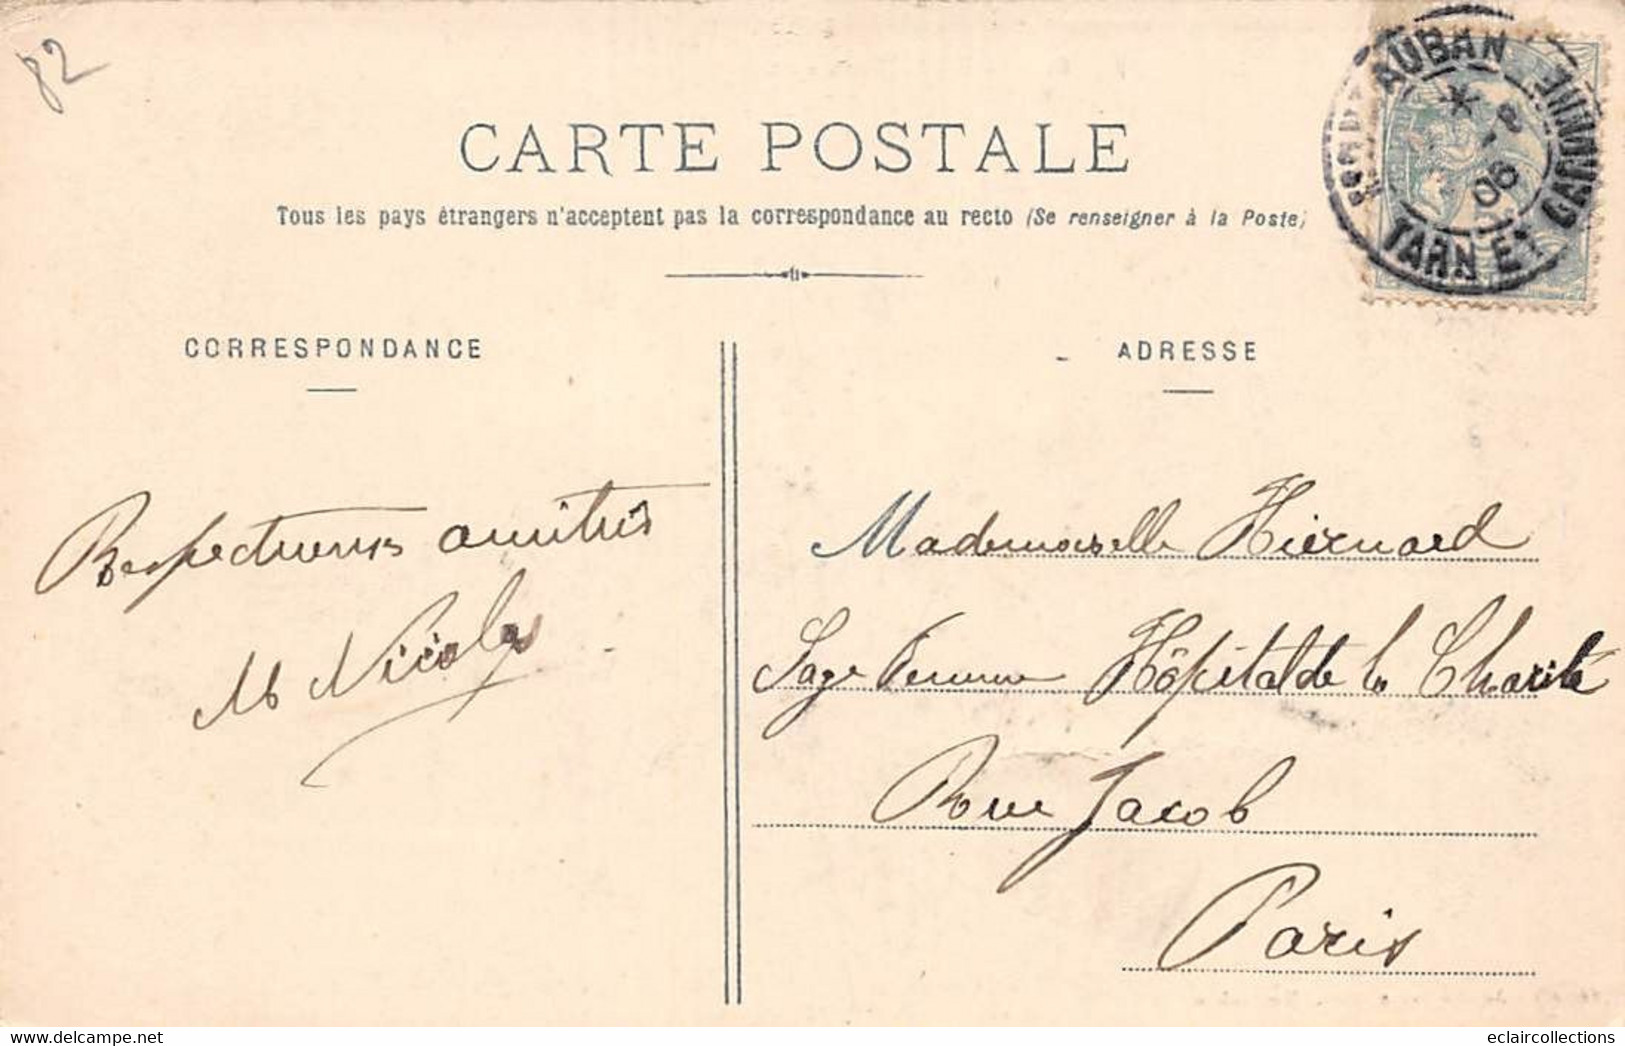 82
CARTE POSTALE
Tous les pays étrangers n'acceptent pas la correspondance au recto (Se renseigner à la Poste)
AUBAN
TARN ET GARONNE
06
CORRESPONDANCE
ADRESSE
Respectueuses amitiés
M Nicolas
Mademoiselle Hiernard
Sage Femme Hôpital de la Charité
Rue Jacob
Paris
www.delcampe.net
eclaircollections